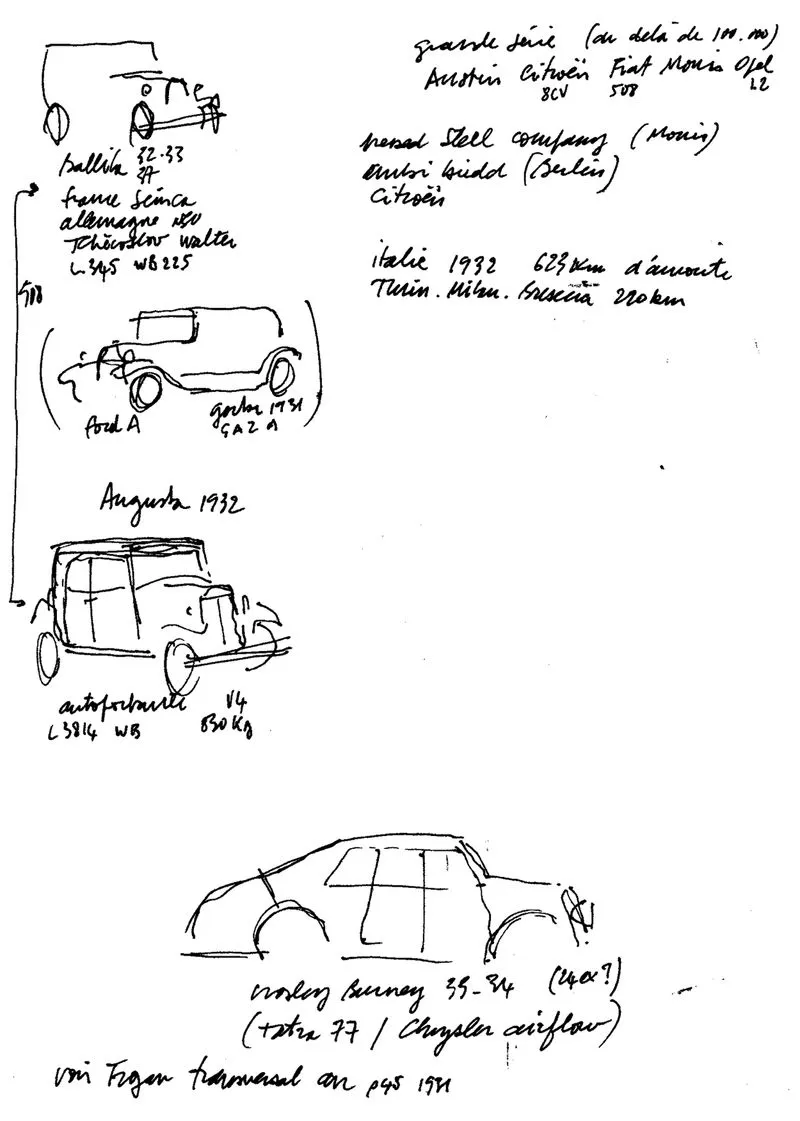 grande série (au delà de 100.000)
Austin Citroën Fiat Morris Opel
8CV 508 L2
pressed Stell company (Morris)
ambi budd (Berlin)
Citroën
italie 1932 623 km d'autoroute
Turin. Milan. Brescia 220 km
Ballila 32.33
37
france Simca
allemagne NSU
Tchécoslov Walter
L 345 WB 225
508
ford A
gorki 1931
GAZ A
Augusta 1932
autoportante V4
L3814 WB 830 Kg
crosley Burney 33-34 (24 ex?)
(tatra 77 / Chrysler airflow)
voir transversal arr p45 1931